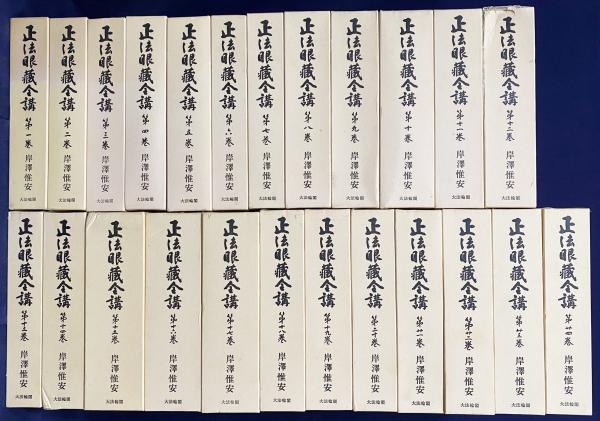 正法眼藏全講 第一巻 岸澤惟安 大法輪閣
正法眼藏全講 第二巻 岸澤惟安 大法輪閣
正法眼藏全講 第三巻 岸澤惟安 大法輪閣
正法眼藏全講 第四巻 岸澤惟安 大法輪閣
正法眼藏全講 第五巻 岸澤惟安 大法輪閣
正法眼藏全講 第六巻 岸澤惟安 大法輪閣
正法眼藏全講 第七巻 岸澤惟安 大法輪閣
正法眼藏全講 第八巻 岸澤惟安 大法輪閣
正法眼藏全講 第九巻 岸澤惟安 大法輪閣
正法眼藏全講 第十巻 岸澤惟安 大法輪閣
正法眼藏全講 第十一巻 岸澤惟安 大法輪閣
正法眼藏全講 第十二巻 岸澤惟安 大法輪閣
正法眼藏全講 第十三巻 岸澤惟安 大法輪閣
正法眼藏全講 第十四巻 岸澤惟安 大法輪閣
正法眼藏全講 第十五巻 岸澤惟安 大法輪閣
正法眼藏全講 第十六巻 岸澤惟安 大法輪閣
正法眼藏全講 第十七巻 岸澤惟安 大法輪閣
正法眼藏全講 第十八巻 岸澤惟安 大法輪閣
正法眼藏全講 第十九巻 岸澤惟安 大法輪閣
正法眼藏全講 第二十巻 岸澤惟安 大法輪閣
正法眼藏全講 第廿一巻 岸澤惟安 大法輪閣
正法眼藏全講 第廿二巻 岸澤惟安 大法輪閣
正法眼藏全講 第廿三巻 岸澤惟安 大法輪閣
正法眼藏全講 第廿四巻 岸澤惟安 大法輪閣